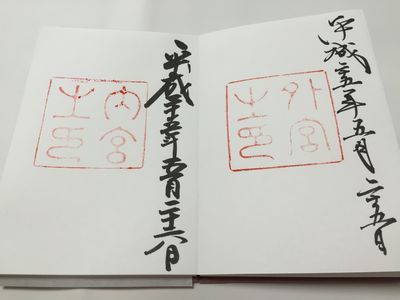 平成二十五年五月二十五日
外宮
之印
平成二十五年五月二十六日
内宮
之印